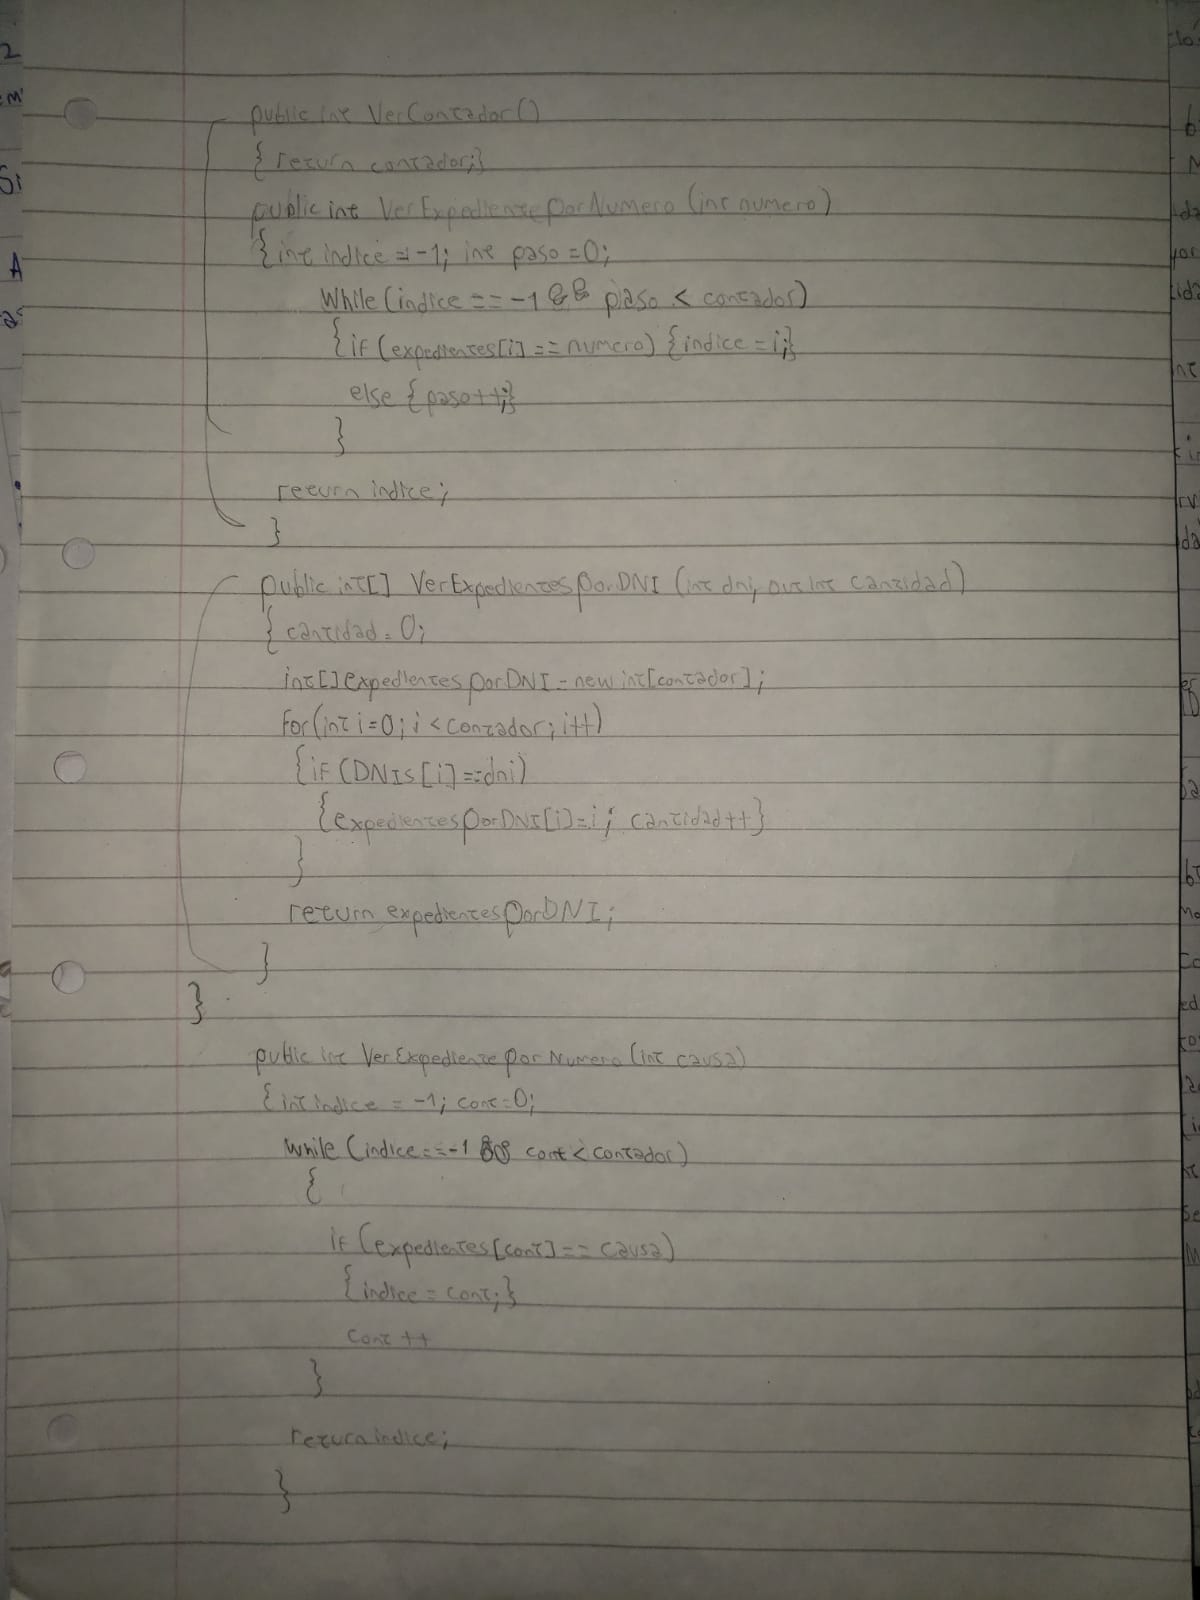 public int VerContador()
{ return contador;}
public int VerExpedientePorNumero (int numero)
{int indice = -1; int paso = 0;
While (indice == -1 && paso < contador)
{if (expedientes[i] == numero) {indice = i;}
else { paso++;}
}
return indice;
}
public int[] VerExpedientesPorDNI (int dni, out int cantidad)
{ cantidad = 0;
int[] expedientesPorDNI = new int[contador];
for (int i = 0; i < contador; i++)
{if (DNIs[i] == dni)
{expedientesPorDNI[i] = i; cantidad++}
}
return expedientesPorDNI;
}
}
public int VerExpediente por Numero (int causa)
{ int indice = -1; cont = 0;
while (indice == -1 && cont < contador)
{
if (expedientes[cont] == causa)
{indice = cont;}
cont ++
}
return indice;
}